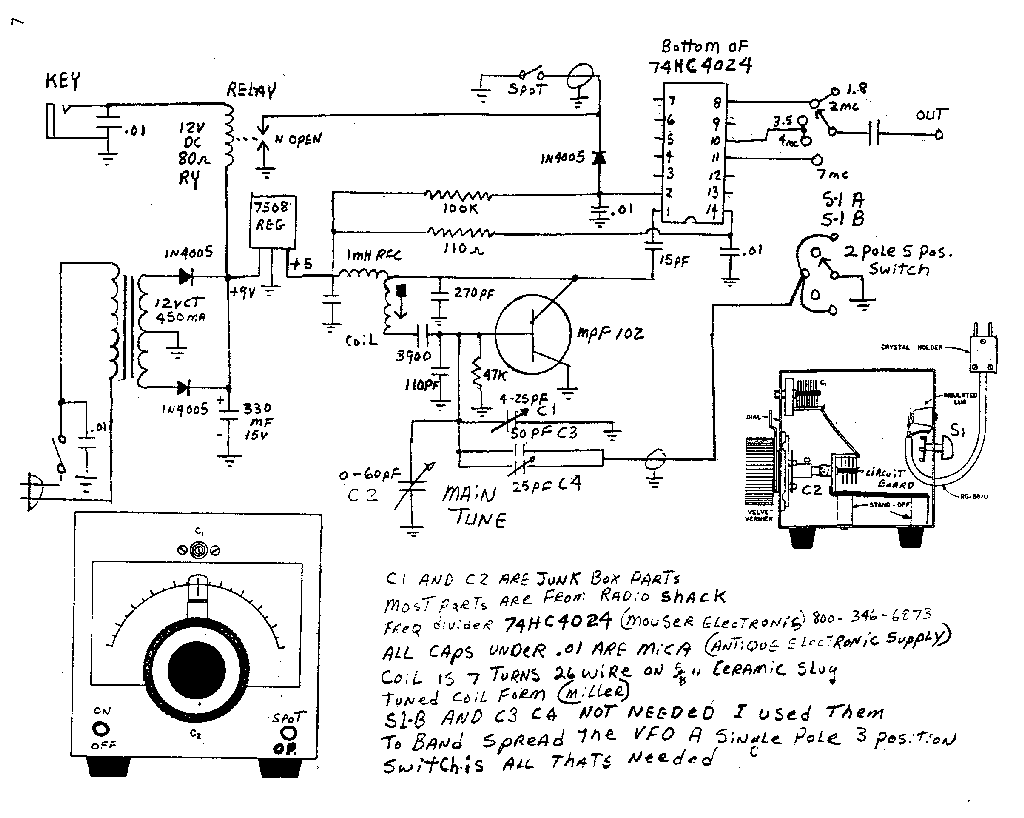 7
Bottom of
74HC4024
KEY
RELAY
.01
12V
DC
80Ω
RY
N OPEN
SPOT
1N4005
.01
7 8
6 9
5 10
4 11
3 12
2 13
1 14
1.8
2mc
3.5
4mc
7mc
OUT
S-1 A
S-1 B
2 Pole 5 Pos.
Switch
REG
+5
100K
110Ω
1mH RFC
15pF
.01
1N4005
+9V
12VCT
450mA
1N4005
+
-
330
MF
15V
.01
270pF
COIL
3900
110pF
47K
MPF 102
4-25pF
C1
50PF C3
25PF C4
0-60pF
MAIN
TUNE
CRYSTAL HOLDER
INSULATED
LUG
S1
DIAL
C1
C2
CIRCUIT
BOARD
STAND-OFF
VELVET
VERNIER
C1
ON
OFF
C2
SPOT
OP.
C1 AND C2 ARE JUNK BOX PARTS
MOST PARTS ARE FROM RADIO SHACK
FREQ divider 74HC4024 (MOUSER ELECTRONIS) 800-346-6873
ALL CAPS UNDER .01 ARE MICA (ANTIQUE ELECTRONIC SUPPLY)
COIL IS 7 TURNS 26 WIRE ON 5/8" CERAMIC Slug
Tuned Coil Form (Miller)
S1-B AND C3 C4 NOT NEEDED I used Them
To BAND SPREAD The VFO A Single Pole 3 position
Switch is ALL THATS Needed